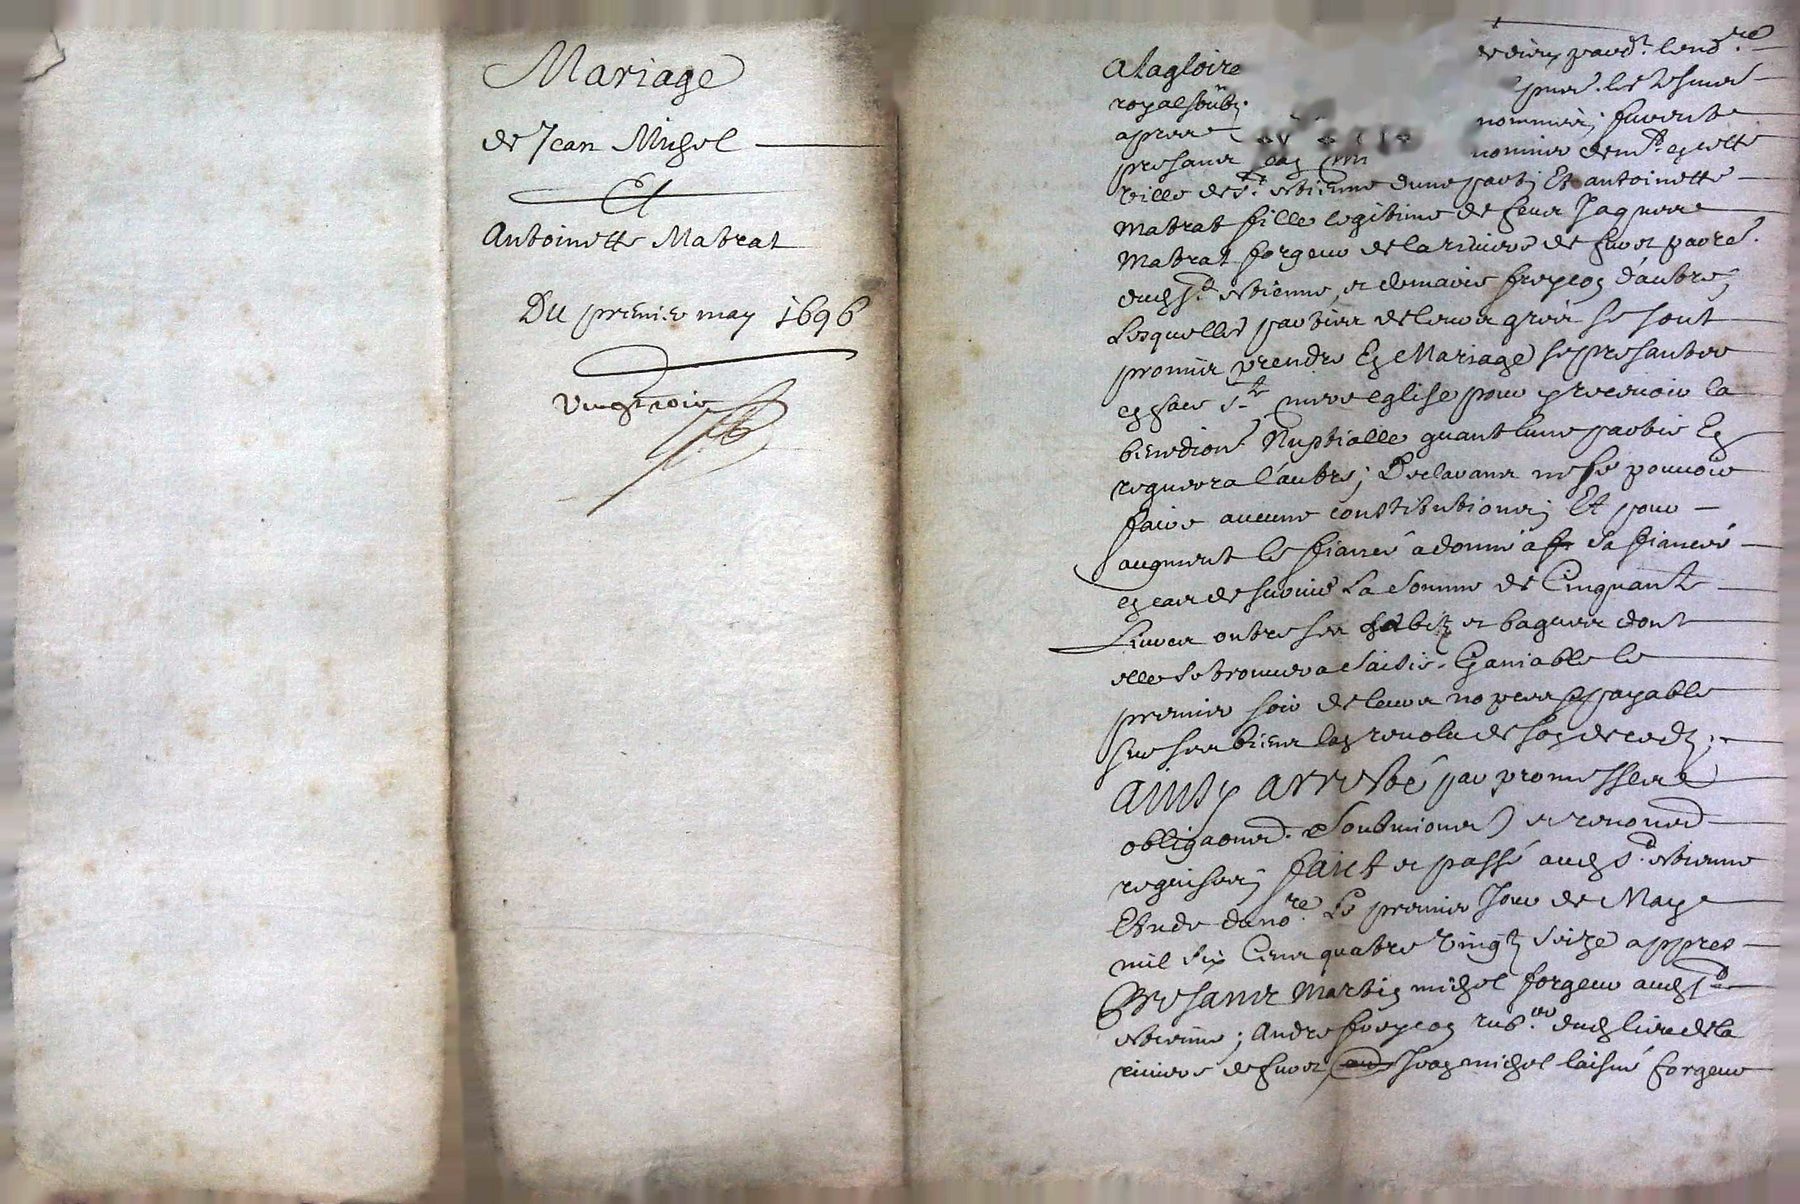 Mariage
de Jean Michel
Et
Antoinette Matrat
Du premier may 1696
Vingt
A la gloire de dieu pard.t le no.re
royal
apres nommés; furent
presans nommés dem.t en cette
ville de s.t estienne dune part; Et antoinette
Matrat fille legitime de feu Jaques
Matrat forgeur de la riviere de furet
dud s.t estienne, et de marie freycon d'autre;
Lesquelles parties de leur gré se sont
promis prendre en Mariage se presanter
en face s.te mere eglise pour y recevoir la
benedion Nuptialle quant lune partie En
requerra l'autre; Declarans ne se pouvoir
faire aucune constitution; Et pour
augment le fiancé a donné a sa fiancée
en cas de survie La somme de Cinquante
Livres outre ses habitz et bagues dont
elle se trouvera saisie. Ganiable le
premier soir de leurs nopces payable
sur ses biens lan revolu de son deced;
Ainsy arresté par promesses
obliga.ons soubmions et renon
requises; faict et passé aud s.t estienne
Etude du no.re Le premier Jour de May
mil six Cens quatre vingtz seize appres
Presans Martin michel forgeur aud s.t
estienne; Andre freycon rub.er dud lieu de la
riviere de furet Jean michel laisné forgeur